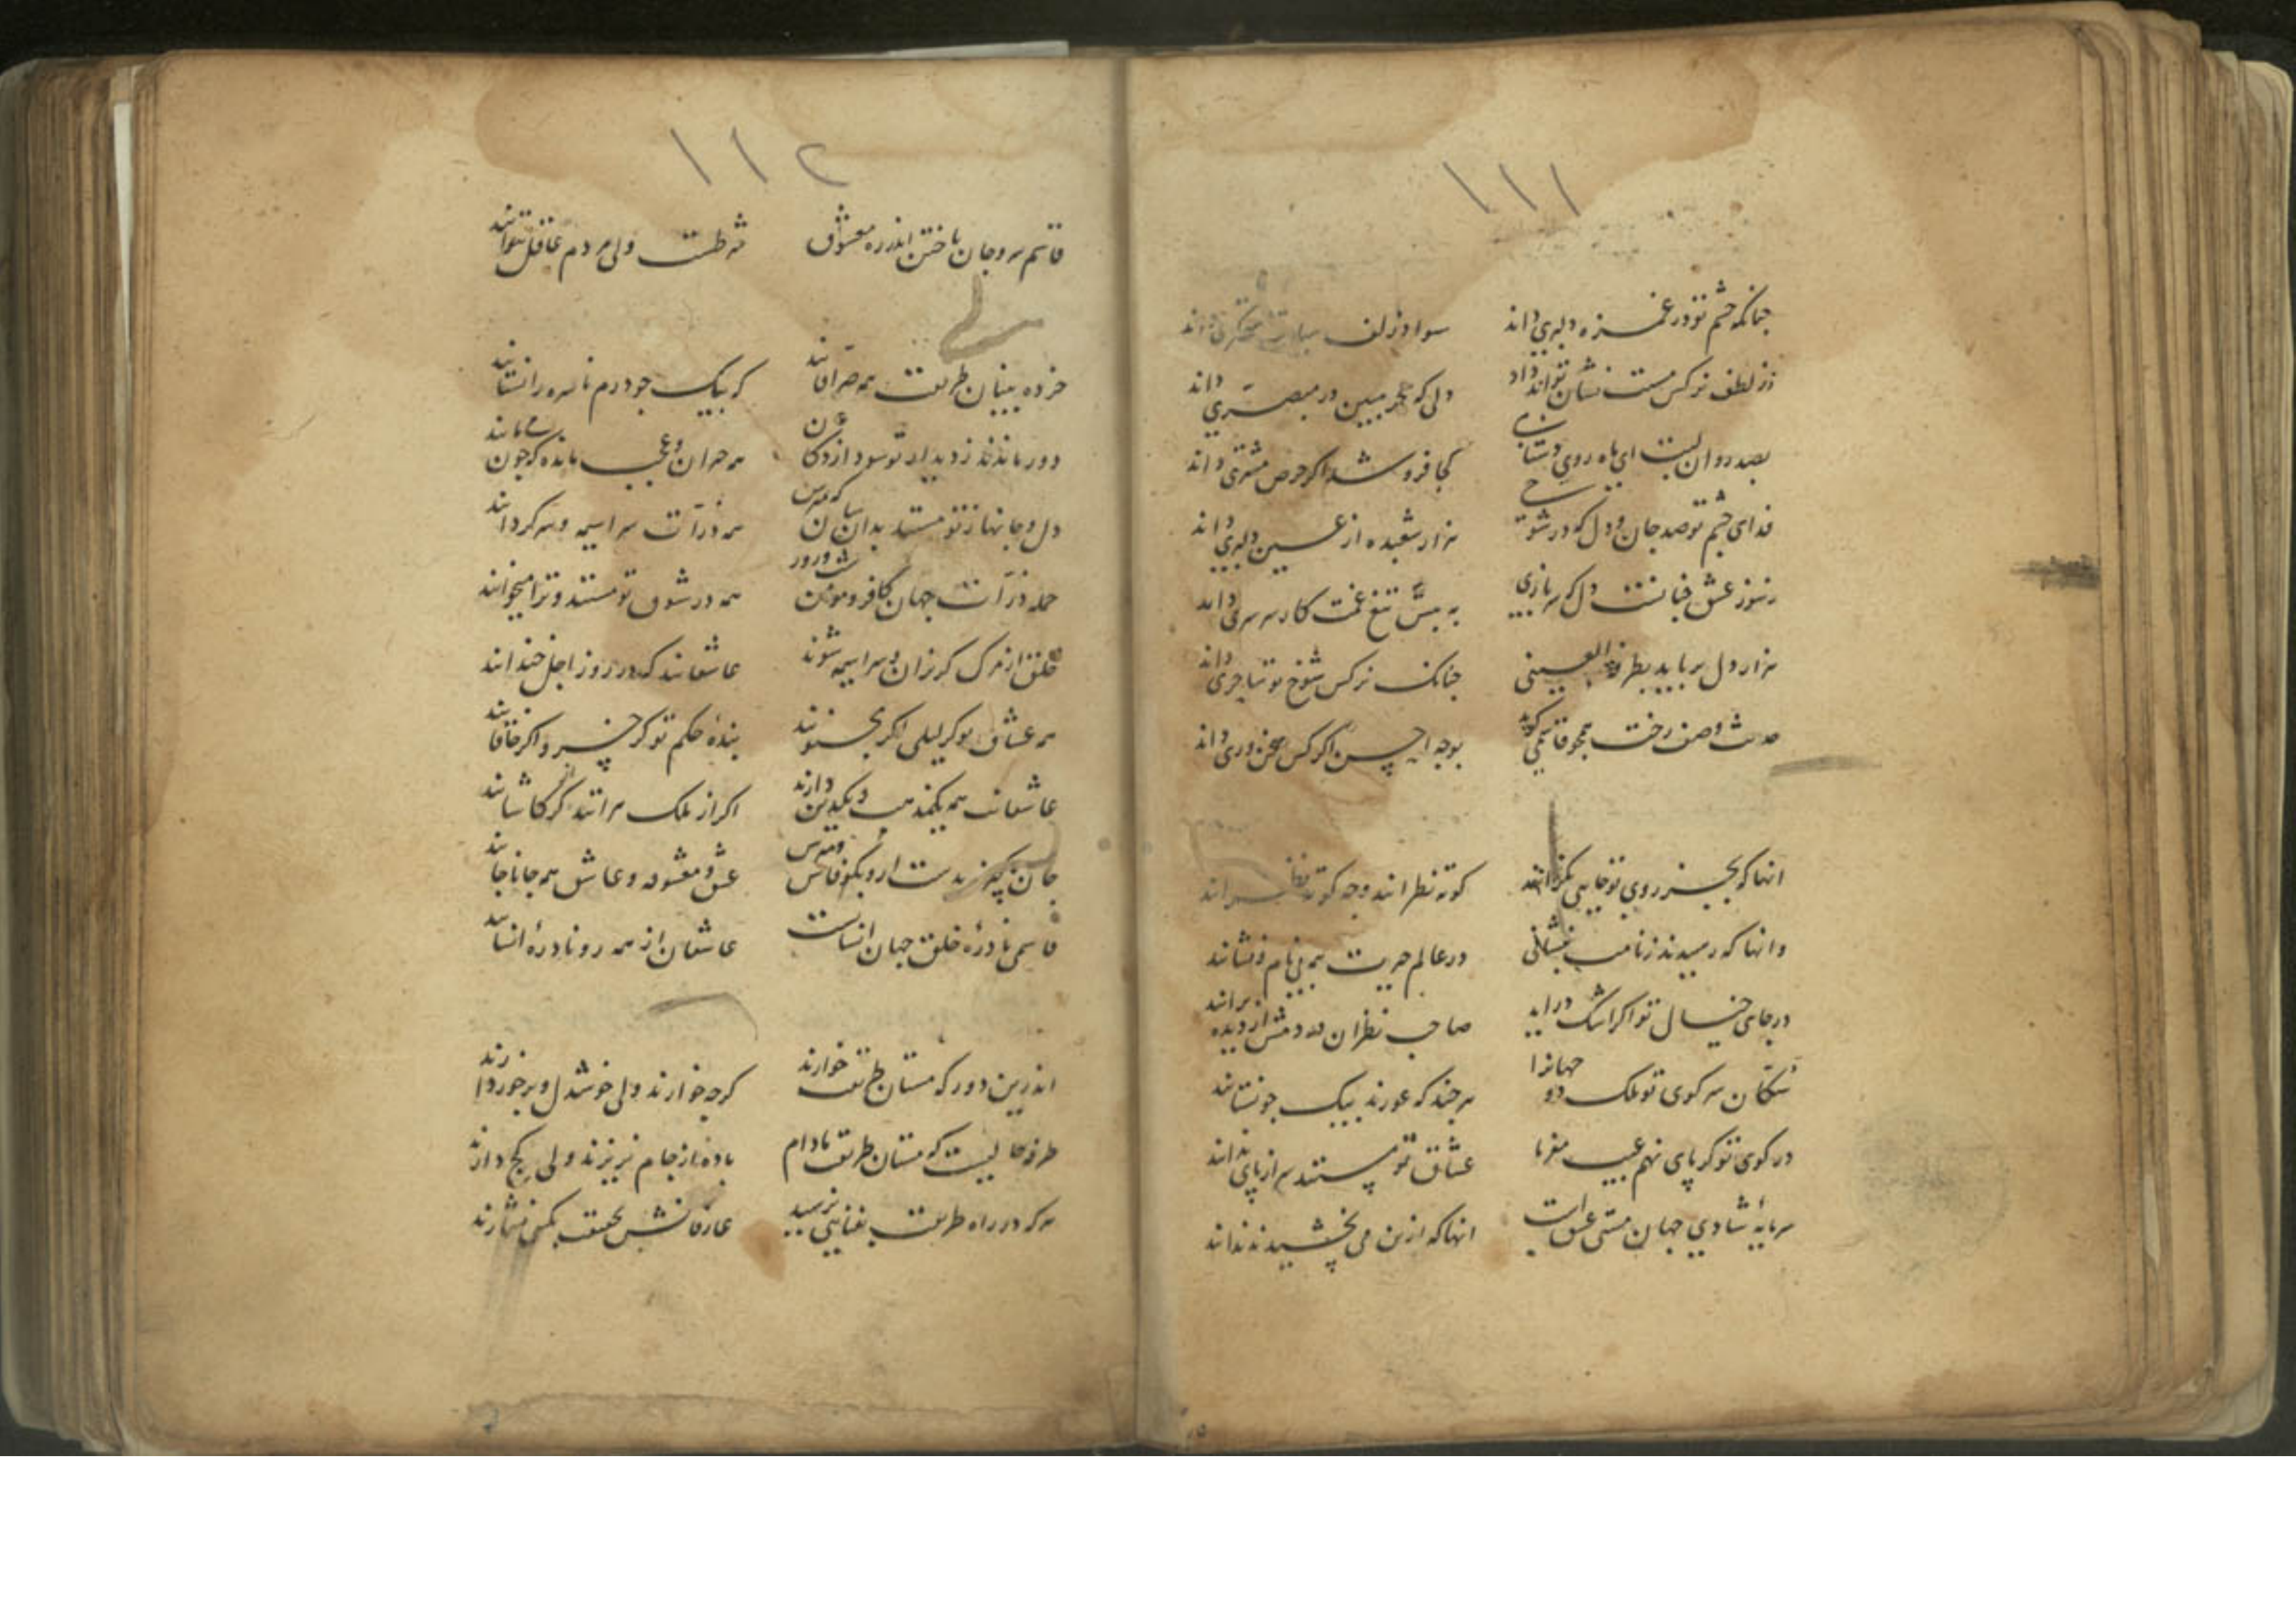 ۱۱۱
چنانکه چشم تو در غمزه دلبری داند سواد زلف داند
ز لطف نرکس مست نشان تواند داد دلی که مبین در مبصری داند
بصد روان لبت ای ماه روی کجا فروشد اکر حرص مشتری داند
فدای چشم تو صد جان و دل که در شوخی هزار شعبده از عین دلبری داند
رموز عشق دل که سربازی به پیش تیغ غمت کار سرسری داند
هزار دل برباید بطرفة العینی چنانک نرکس شوخ تو ساحری داند
حدیث وصف رخت همچو قاسمی کوید بوجه احسن اکر کس سخنوری داند
انها که بجز روی تو جایی نکرانند کوته نظرانند وچه کوته نظرانند
وانها که رسیدند ز نامت بنشانی در عالم حریت بی نام و نشانند
در جای خیال تو اکر اشک دراید صاحب نظران از دیده برانند
سکان سر کوی تو ملک دو جهانرا هر چند که عورند بیک جو نستانند
در کوی تو کر پای نهم عیب مفرما عشاق تو مستند سر از پای ندانند
سرمایهٔ شادی جهان مستی عشق است انها که ازین می نچشیدند ندانند
۱۱۲
قاسم سر و جان باختن اندر ره معشوق شرطست ولی مردم عاقل نتوانند
خرده بینان طریقت همه صرافانند که بیک جو درم ناسره را نستانند
دور ماندند ز دیدار تو همه حیران و عجب مانده که چون
دل و جانها ز تو مستند بدان سان که مپرس همه ذرات سراسیمه و سرکردانند
جمله ذرات جهان کافر و مومن همه در شوق تو مستند و ترا میخوانند
خلق از مرک کریزان و سراسیمه شوند عاشقانند که در روز اجل خندانند
همه عشاق تو کر لیلی اکر مجنونند بندهٔ حکم تو کر خسرو اکر خاقانند
عاشقان همه یک مذهب و یکدین دارند اکر از ملک هراتند اکر کاشانند
جان چه مپرس عشق و معشوقه و عاشق همه جانا جانند
قاسمی نادرهٔ خلق جهان انسانست عاشقان از همه رو نادرهٔ انسانند
اندرین دور که مستان طریقت خوارند کرچه خوارند ولی خوشدل و برخوردارند
طرفه حالیست که مستان طریقت مادام باده از جام نریزند ولی کج دارند
هرکه در راه طریقت بفنایی نرسید عارفانش بحقیقت بکسی نشمارند